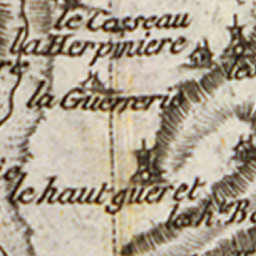 le Casseau
la Herpiniere
la Guerrerie
le haut gueret
les h.